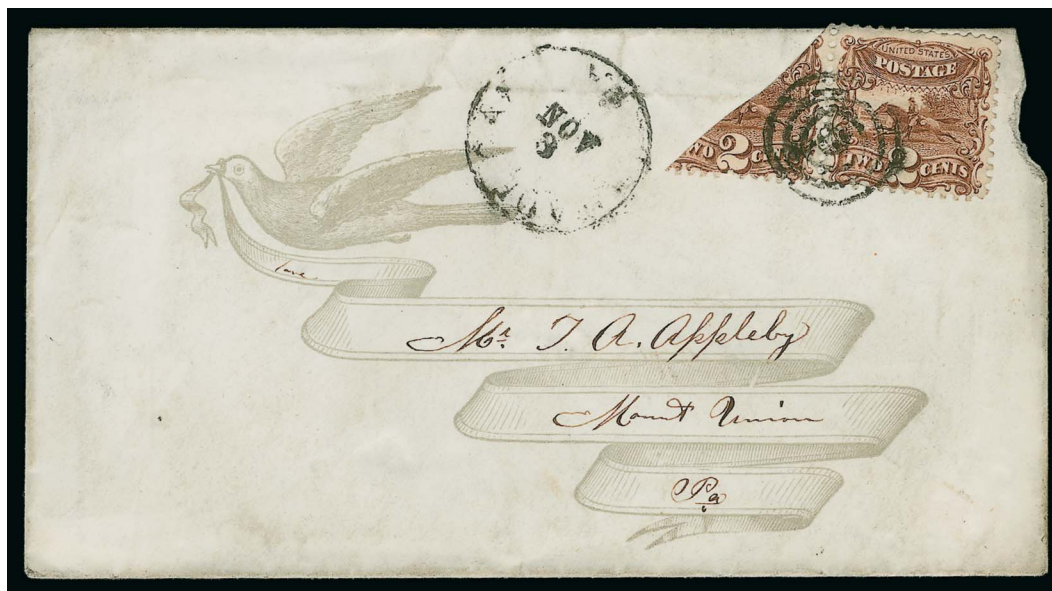 UNITED STATES
POSTAGE
TWO 2 CE
TWO 2 CENTS
NOV
3
Mr. T. A. Appleby
Mount Union
Pa